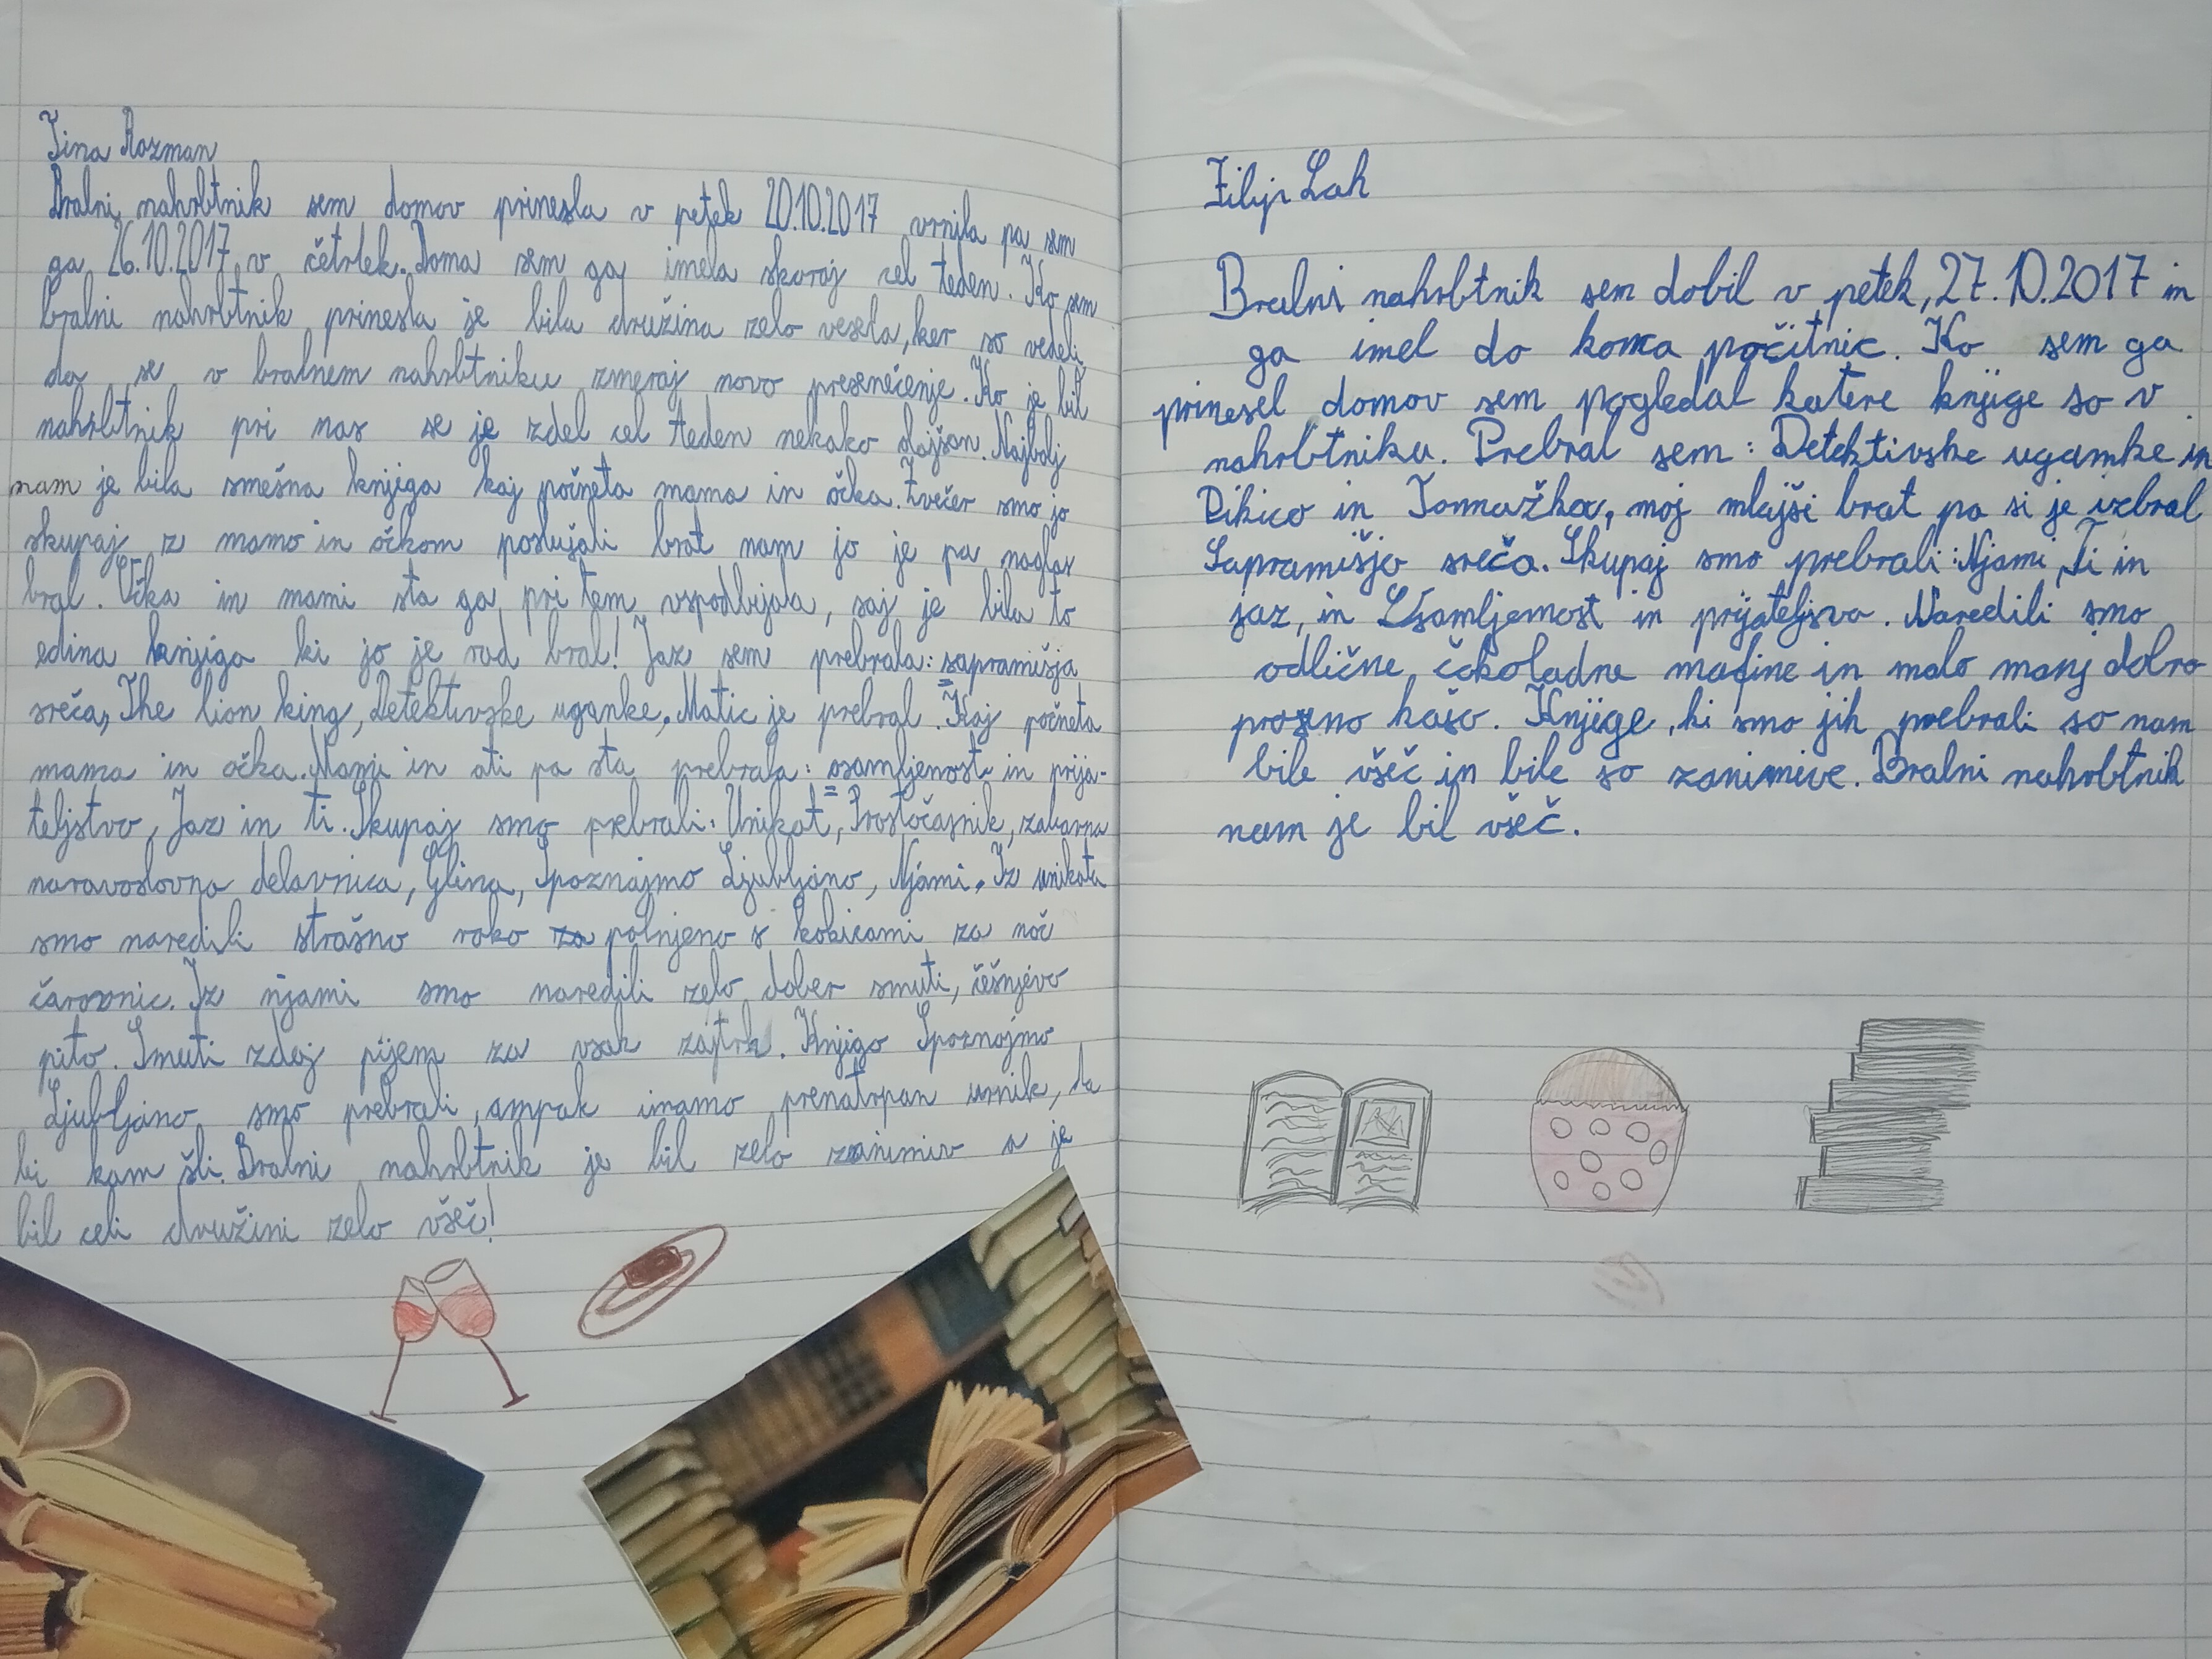 Tina Rozman
Bralni nahrbtnik sem domov prinesla v petek 20.10.2017 vrnila pa sem
ga 26.10.2017 v četrtek. Doma sem ga imela skoraj cel teden. Ko sem
bralni nahrbtnik prinesla je bila družina zelo vesela, ker so vedeli,
da se v bralnem nahrbtniku zmeraj novo presenečenje. Ko je bil
nahrbtnik pri nas se je zdel cel teden nekako slajšan. Najbolj
nam je bila smešna knjiga kaj počneta mama in očka. Zvečer smo jo
skupaj z mamo in očkom poslušali brat nam jo je pa naglas
bral. Očka in mami sta ga pri tem vspodbijala, saj je bila to
edina knjiga ki jo je rad bral! Jaz sem prebrala: sapramišja
sreča, The lion king, Detektivske uganke, Matic je prebral: Kaj počneta
mama in očka. Mami in ati pa sta prebrala: osamljenost in prija-
teljstvo, Jaz in ti. Skupaj smo prebrali: Unikat, Prostočasnik, zabavna
naravoslovna delavnica, Glina, Spoznajmo Ljubljano, Njami. Iz unikata
smo naredili strašno roko polnjeno s kokicami za noč
čarovnic. Iz njami smo naredili zelo dober smuti, češnjevo
pito. Smuti zdaj pijem za vsak zajtrk. Knjigo Spoznajmo
Ljubljano smo prebrali, ampak imamo prenatrpan urnik, da
bi kam šli. Bralni nahrbtnik je bil zelo zanimiv je
bil celi družini zelo všeč!
Filip Lah
Bralni nahrbtnik sem dobil v petek, 27.10.2017 in
ga imel do konca počitnic. Ko sem ga
prinesel domov sem pogledal katere knjige so v
nahrbtniku. Prebral sem: Detektivske uganke in
Pikico in Tomažka, moj mlajši brat pa si je izbral
Sapramišjo sreča. Skupaj smo prebrali: Njami, Ti in
jaz, in Osamljenost in prijateljsvo. Naredili smo
odlične čokoladne mafine in malo manj dobro
prosno kašo. Knjige, ki smo jih prebrali so nam
bile všeč in bile so zanimive. Bralni nahrbtnik
nam je bil všeč.